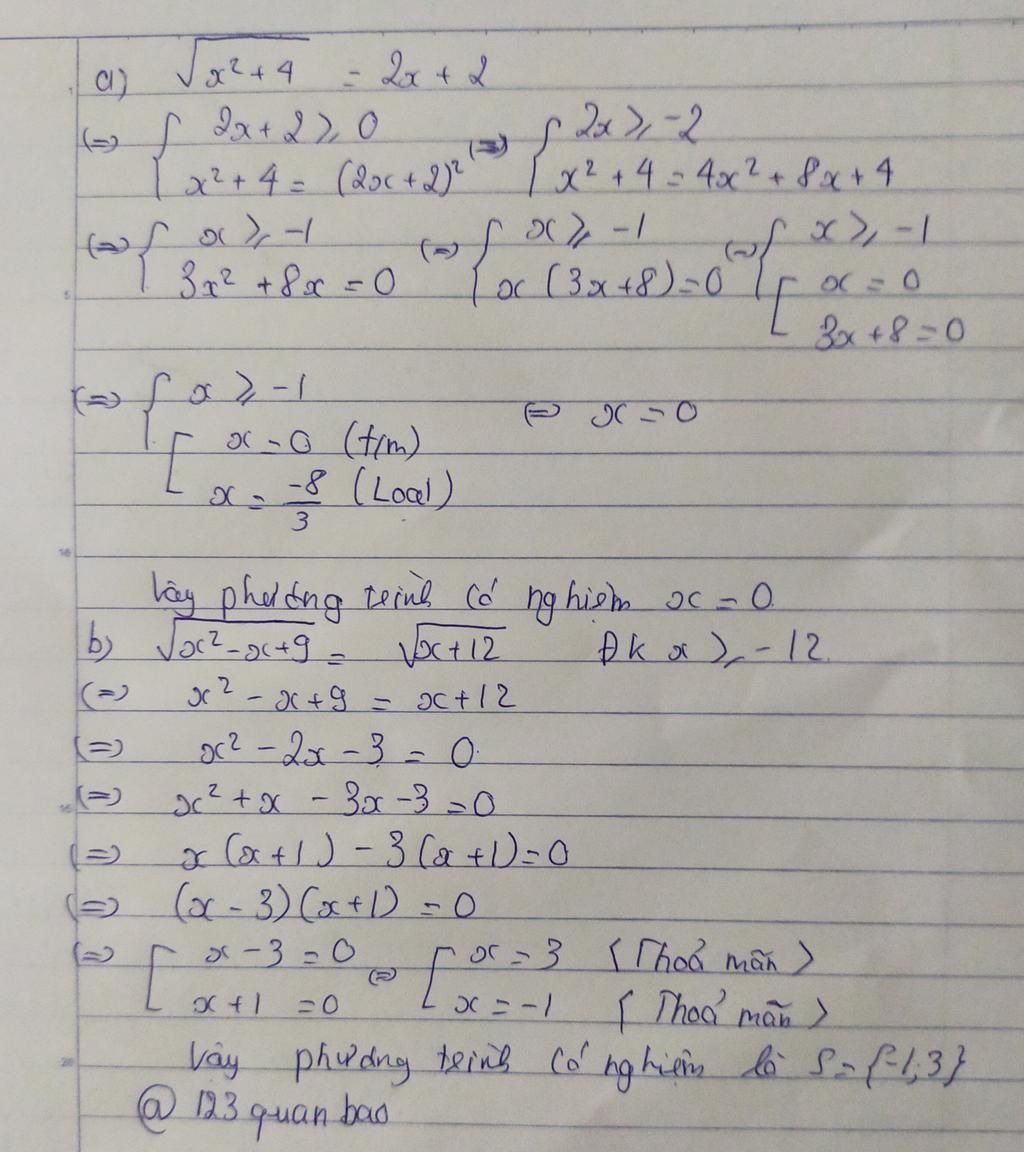 a) √(x² + 4) = 2x + 2
(=) { 2x + 2 ≥ 0 (=) { 2x ≥ -2
x² + 4 = (2x + 2)² x² + 4 = 4x² + 8x + 4
(=) { x ≥ -1 (=) { x ≥ -1 (=) { x ≥ -1
3x² + 8x = 0 x (3x + 8) = 0 [ x = 0
3x + 8 = 0
(=) { x ≥ -1 (=) x = 0
[ x = 0 (t/m)
x = -8/3 (Loại)
Vậy phương trình có nghiệm x = 0
b) √(x² - x + 9) = √(x + 12) Đk x ≥ -12
(=) x² - x + 9 = x + 12
(=) x² - 2x - 3 = 0
(=) x² + x - 3x - 3 = 0
(=) x (x + 1) - 3 (x + 1) = 0
(=) (x - 3) (x + 1) = 0
(=) [ x - 3 = 0 (=) [ x = 3 (Thoả mãn)
x + 1 = 0 x = -1 (Thoả mãn)
Vậy phương trình có nghiệm là S = {-1; 3}
@ 123 quan bao